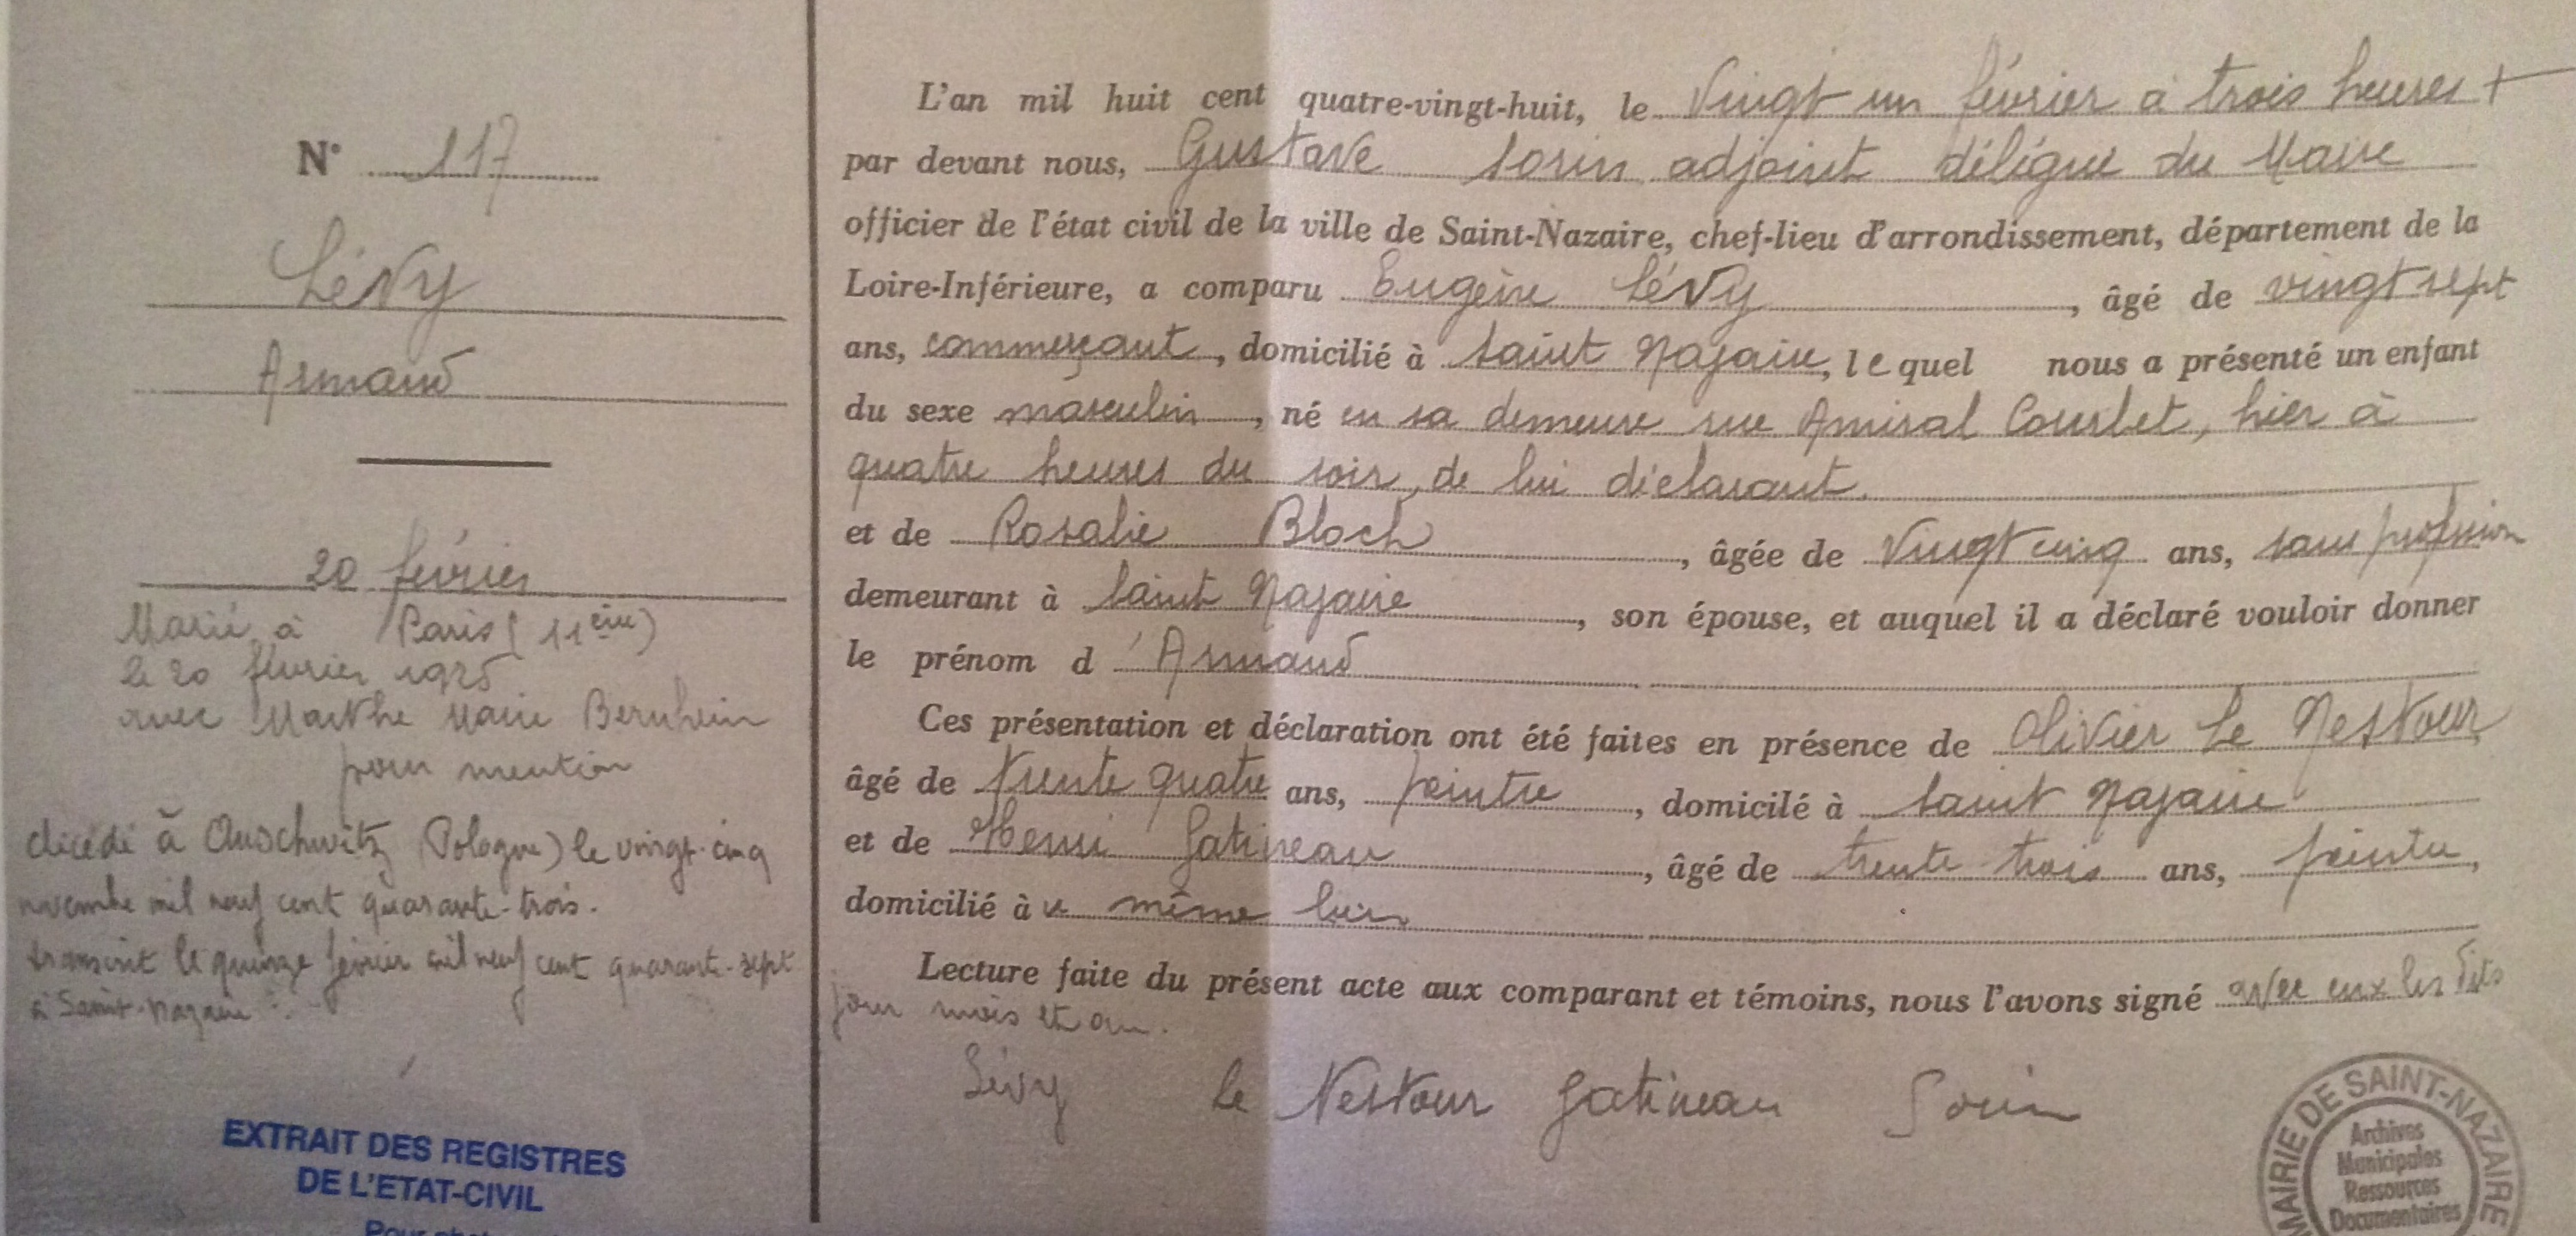 N° 117
Lévy
Armand
20 février
Marié à Paris (11ème)
le 20 février 1925
avec Marthe Marie Bernheim
pour mention
décédé à Auschwitz (Pologne) le vingt-cinq
novembre mil neuf cent quarante-trois.
transcrit le quinze février mil neuf cent quarante-sept
à Saint-Nazaire
EXTRAIT DES REGISTRES
DE L'ETAT-CIVIL
L'an mil huit cent quatre-vingt-huit, le Vingt un février à trois heures +
par devant nous, Gustave Sorin adjoint délégué du Maire
officier de l'état civil de la ville de Saint-Nazaire, chef-lieu d'arrondissement, département de la
Loire-Inférieure, a comparu Eugène Lévy, âgé de vingt sept
ans, commerçant, domicilié à Saint Nazaire, lequel nous a présenté un enfant
du sexe masculin, né en sa demeure rue Amiral Courbet, hier à
quatre heures du soir, de lui déclarant.
et de Rosalie Bloch, âgée de Vingt cinq ans, sans profession
demeurant à Saint Nazaire, son épouse, et auquel il a déclaré vouloir donner
le prénom d'Armand
Ces présentation et déclaration ont été faites en présence de Olivier Le Nestour
âgé de trente quatre ans, peintre, domicilé à Saint Nazaire
et de Henri Gatineau, âgé de trente trois ans, peintre,
domicilié à u même lieu
Lecture faite du présent acte aux comparant et témoins, nous l'avons signé avec eux les dits
jour mois et an.
Lévy Le Nestour Gatineau Sorin
MAIRIE DE SAINT-NAZAIRE
Archives
Municipales
Ressources
Documentaires